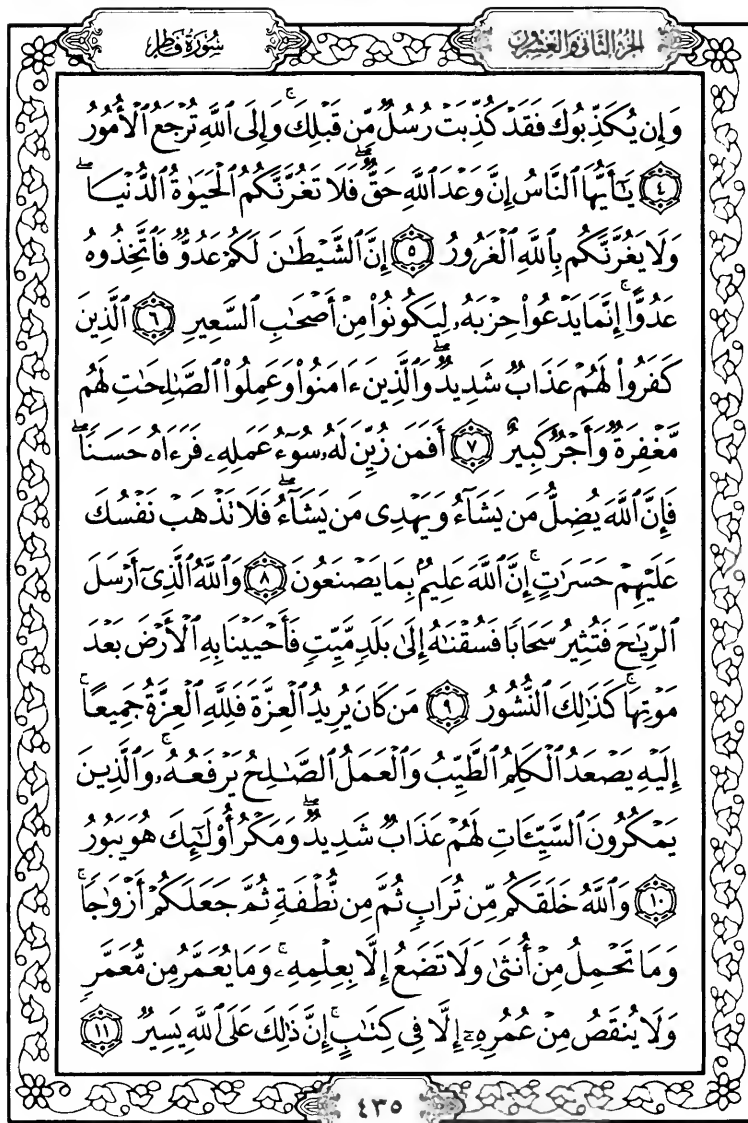 سُورَةُ فَاطِرٍ
الجُزْءُ الثَّانِي وَالْعِشْرُونَ
وَإِن يُكَذِّبُوكَ فَقَدْ كُذِّبَتْ رُسُلٌ مِّن قَبْلِكَ ۚ وَإِلَى ٱللَّهِ تُرْجَعُ ٱلْأُمُورُ
﴿٤﴾ يَٰٓأَيُّهَا ٱلنَّاسُ إِنَّ وَعْدَ ٱللَّهِ حَقٌّ ۖ فَلَا تَغُرَّنَّكُمُ ٱلْحَيَوٰةُ ٱلدُّنْيَا ۖ
وَلَا يَغُرَّنَّكُم بِٱللَّهِ ٱلْغَرُورُ ﴿٥﴾ إِنَّ ٱلشَّيْطَٰنَ لَكُمْ عَدُوٌّ فَٱتَّخِذُوهُ
عَدُوًّا ۚ إِنَّمَا يَدْعُوا۟ حِزْبَهُۥ لِيَكُونُوا۟ مِنْ أَصْحَٰبِ ٱلسَّعِيرِ ﴿٦﴾ ٱلَّذِينَ
كَفَرُوا۟ لَهُمْ عَذَابٌ شَدِيدٌ ۖ وَٱلَّذِينَ ءَامَنُوا۟ وَعَمِلُوا۟ ٱلصَّٰلِحَٰتِ لَهُم
مَّغْفِرَةٌ وَأَجْرٌ كَبِيرٌ ﴿٧﴾ أَفَمَن زُيِّنَ لَهُۥ سُوٓءُ عَمَلِهِۦ فَرَءَاهُ حَسَنًا ۖ
فَإِنَّ ٱللَّهَ يُضِلُّ مَن يَشَآءُ وَيَهْدِى مَن يَشَآءُ ۖ فَلَا تَذْهَبْ نَفْسُكَ
عَلَيْهِمْ حَسَرَٰتٍ ۚ إِنَّ ٱللَّهَ عَلِيمٌۢ بِمَا يَصْنَعُونَ ﴿٨﴾ وَٱللَّهُ ٱلَّذِىٓ أَرْسَلَ
ٱلرِّيَٰحَ فَتُثِيرُ سَحَابًا فَسُقْنَٰهُ إِلَىٰ بَلَدٍ مَّيِّتٍ فَأَحْيَيْنَا بِهِ ٱلْأَرْضَ بَعْدَ
مَوْتِهَا ۚ كَذَٰلِكَ ٱلنُّشُورُ ﴿٩﴾ مَن كَانَ يُرِيدُ ٱلْعِزَّةَ فَلِلَّهِ ٱلْعِزَّةُ جَمِيعًا ۚ
إِلَيْهِ يَصْعَدُ ٱلْكَلِمُ ٱلطَّيِّبُ وَٱلْعَمَلُ ٱلصَّٰلِحُ يَرْفَعُهُۥ ۚ وَٱلَّذِينَ
يَمْكُرُونَ ٱلسَّيِّـَٔاتِ لَهُمْ عَذَابٌ شَدِيدٌ ۖ وَمَكْرُ أُو۟لَٰٓئِكَ هُوَ يَبُورُ
﴿١٠﴾ وَٱللَّهُ خَلَقَكُم مِّن تُرَابٍ ثُمَّ مِن نُّطْفَةٍ ثُمَّ جَعَلَكُمْ أَزْوَٰجًا ۚ
وَمَا تَحْمِلُ مِنْ أُنثَىٰ وَلَا تَضَعُ إِلَّا بِعِلْمِهِۦ ۚ وَمَا يُعَمَّرُ مِن مُّعَمَّرٍ
وَلَا يُنقَصُ مِنْ عُمُرِهِۦٓ إِلَّا فِى كِتَٰبٍ ۚ إِنَّ ذَٰلِكَ عَلَى ٱللَّهِ يَسِيرٌ ﴿١١﴾
٤٣٥